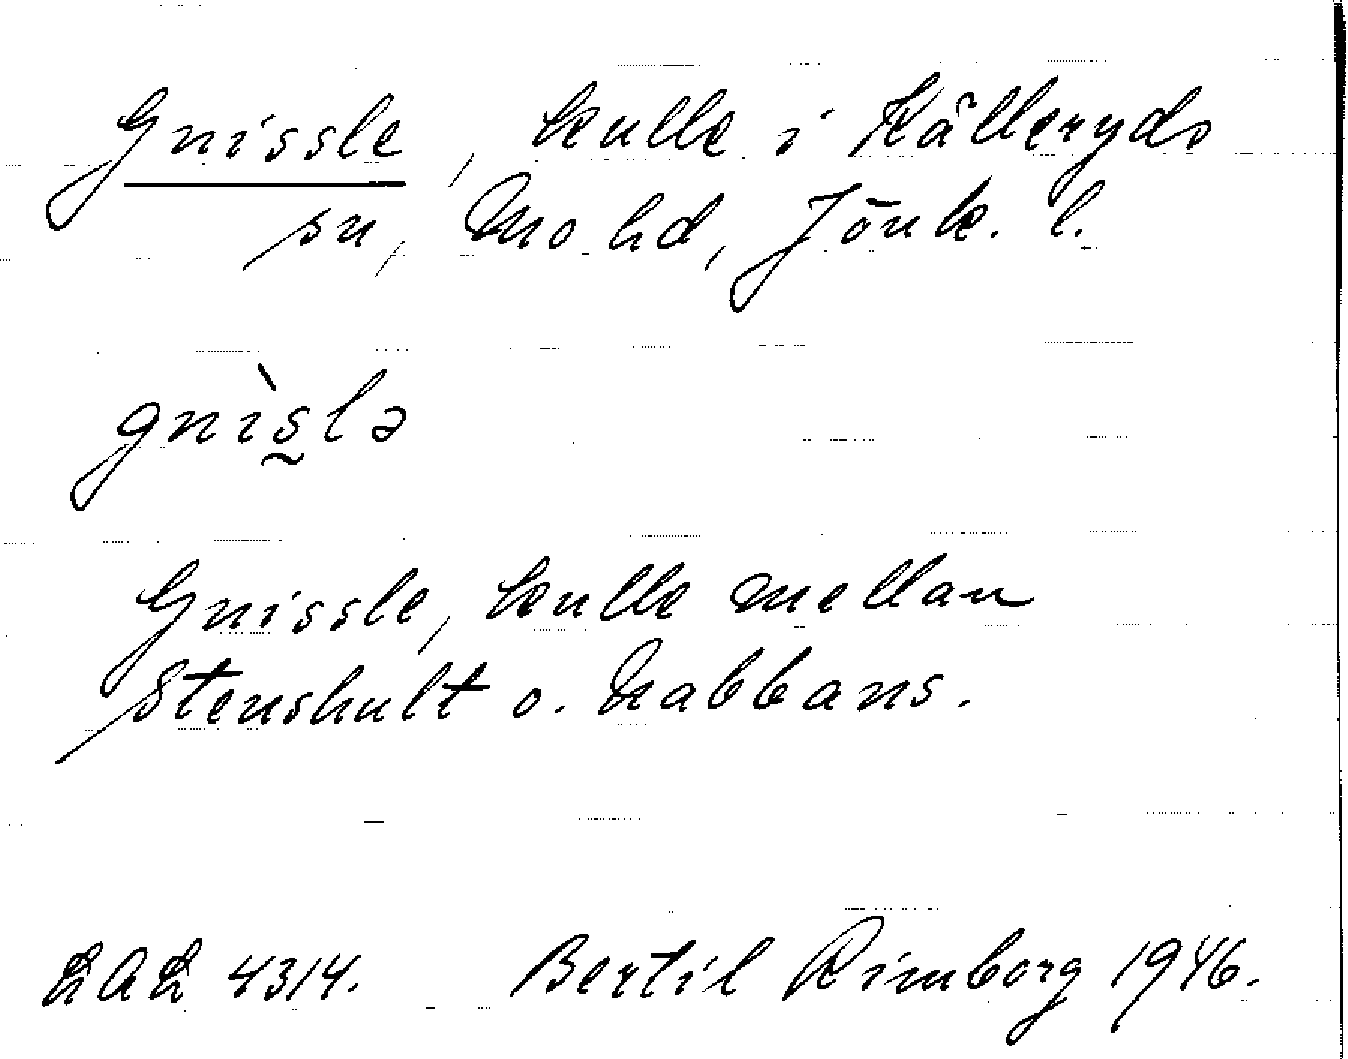 Gnissle, kulle i Källeryds
sn, Mo hd, Jönk. l.
gnìs̰lə
Gnissle, kulle mellan
Stenshult o. Nabbans.
LAL 4314. Bertil Rimborg 1946.